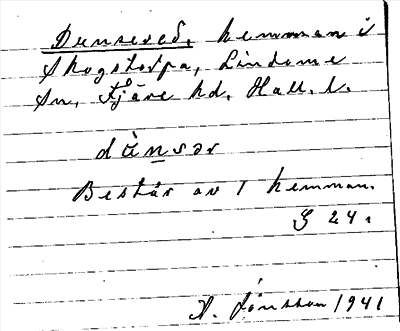 Dunsered, hemman i
Skogstorpa, Lindome
sn, Fjäre hd, Hall. l.
dùnsər
Består av 1 hemman.
G 24.
A. Jönsson 1941